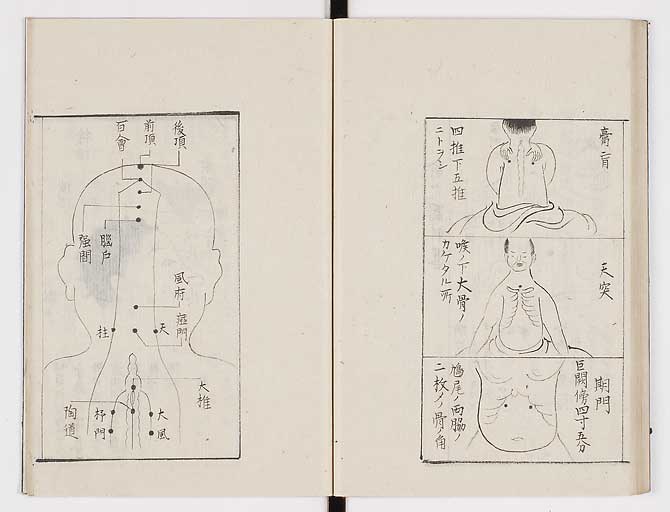 膏肓
四推下五推
ニトヲシ
天突
喉ノ下大骨ノ
カケタル所
期門
巨闕傍四寸五分
鳩尾ノ両脇ノ
二枚メノ骨ノ角
後頂
前頂
百會
脳戸
强間
風府
瘂門
天
柱
大椎
大
風
杼
門
陶道